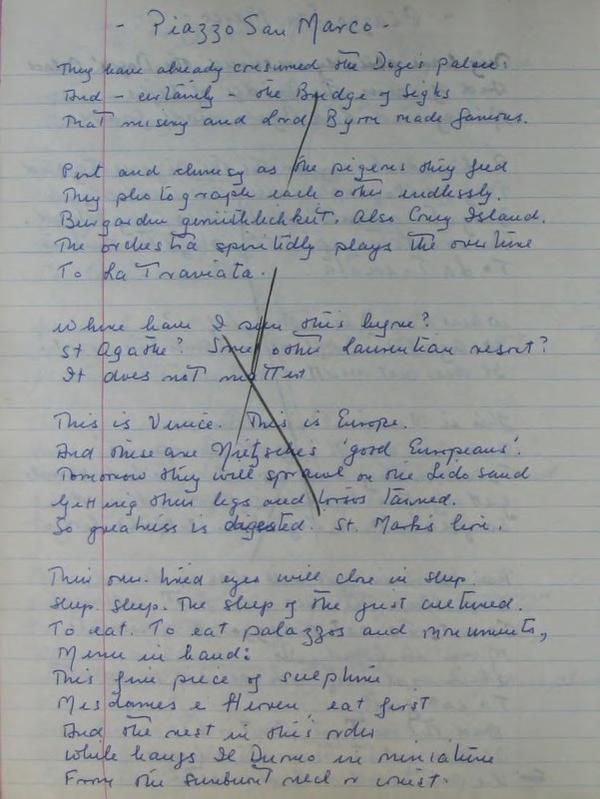 - Piazzo San Marco -
They have already consumed the Doge's palace:
And - certainly - the Bridge of Sighs
That misery and Lord Byron made famous.
Pert and clumsy as the pigeons they feed
They photograph each other endlessly.
Also Coney Island.
The orchestra spiritidly plays the overture
To La Traviata.
Where have I seen this before?
St Agathe? Some other Laurentian resort?
It does not matter
This is Venice. This is Europe.
And these are Nietzsche's 'good Europeans'.
Tomorrow they will sprawl on the Lido sand
Getting their legs and torsos tanned.
So greatness is digested. St. Mark's lion.
Their over-tired eyes will close in sleep.
Sleep. Sleep. The sleep of the just cultured.
To eat. To eat palazzos and monuments,
Menu in hand:
This fine piece of sculpture
Mesdames e Herren, eat first
And the rest in this order
While hangs Il Duomo in miniature
From the sunburnt neck or wrist.